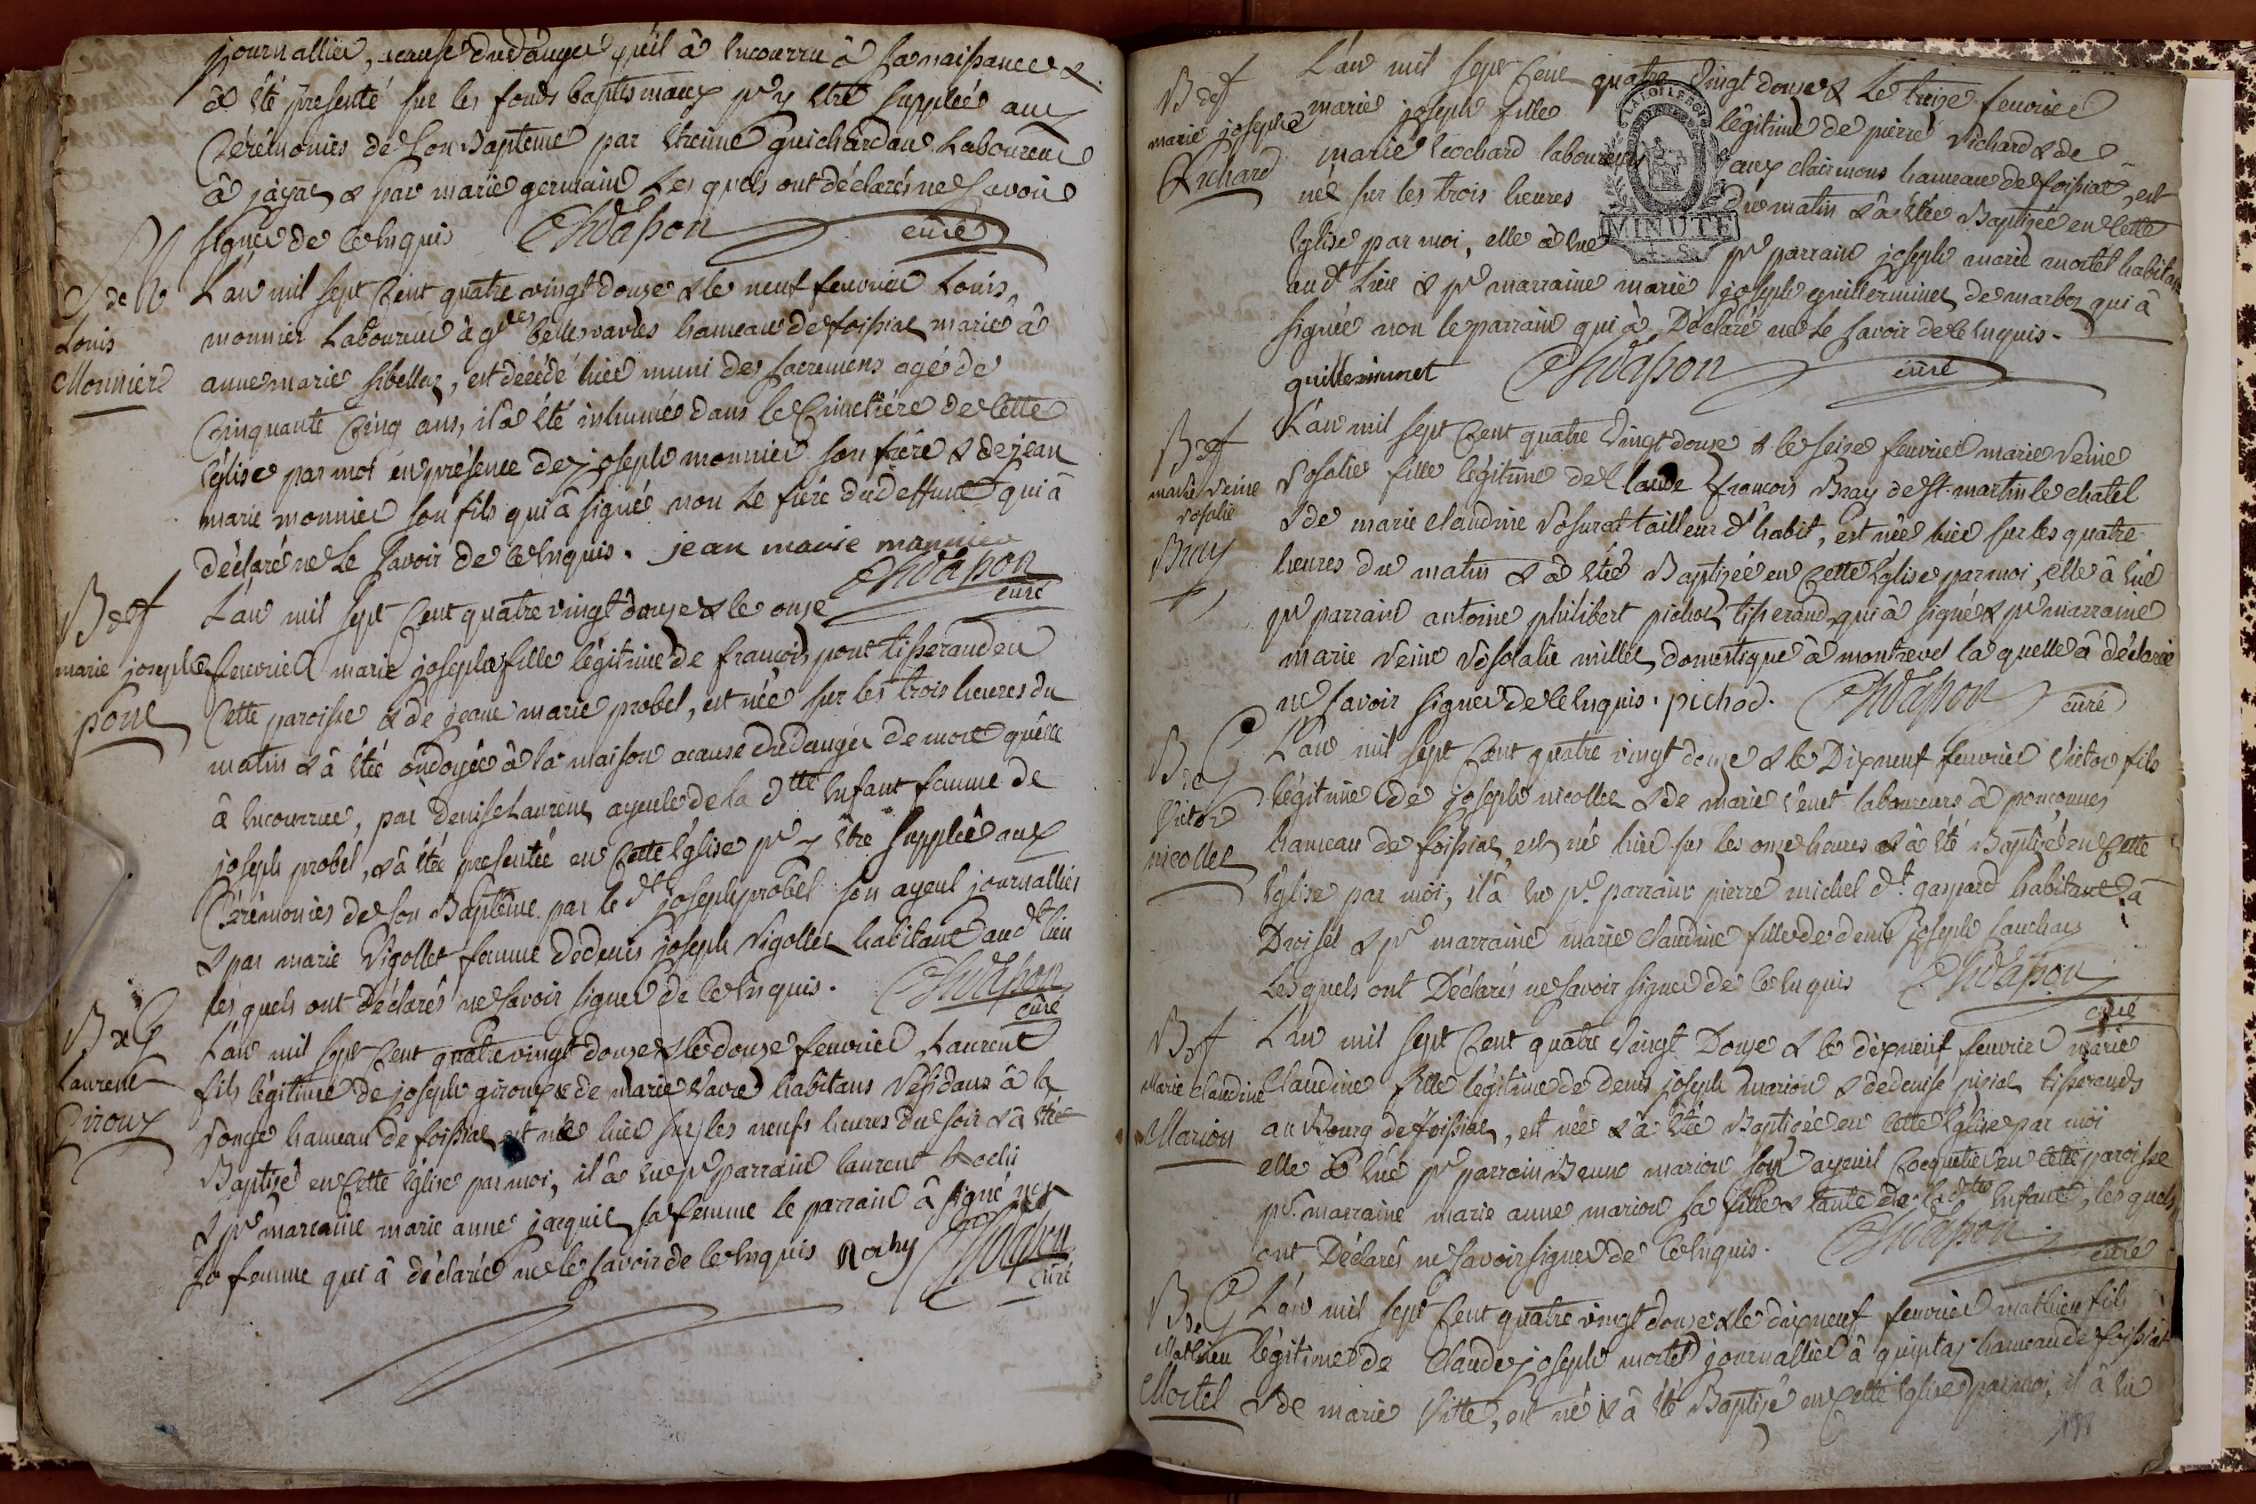 journallier, acause du danger qu'il â encourru â sa naissance &
â été presenté sur les fonds baptismaux pr y etre supplée aux
Cérémonies de son Baptême par etienne guichardan Laboureur
â jayat & par marie germain Les quels ont déclarés ne savoir
signer de ce enquis Chvasson curé
S de M
Louis
Monnier
L'an mil sept Cent quatre vingt douze & le neuf fevrier Louis
monnier Laboureur à gdes bellesvavres hameau de foissiat marié â
anne marie sibellas, est décédé hier muni des sacremens agé de
Cinquante Cinq ans, il â été inhumé dans le Cimetiére de Cette
église par moi en présence de joseph monnier son frére & de jean
marie monnier son fils qui â signé non le frére du deffunt qui â
déclaré ne le savoir de ce enquis. jean marie monnier
Chvasson
curé
B de f
marie joseph
pont
L'an mil sept Cent quatre vingt douze & le onze
fevrier marie joseph fille légitime de françois pont tisserand en
Cette paroisse & de jeane marie probel, est née sur les trois heures du
matin & â été ondoyée â la maison acause du danger de mort qu'elle
â encourrue, par denise Laurent ayeule de la dtte enfant femme de
joseph probel, & â été presentée en Cette église pr y être supplée aux
Cérémonies de son Baptême par le dt joseph probel son ayeul journallier
& par marie Vigollet femme de denis joseph Vigollet habitant aud. lieu
les quels ont Déclarés ne savoir signer de ce enquis. Chvasson
curé
B de G
Laurent
Giroux
L'an mil sept Cent quatre vingt douze & le douze fevrier Laurent
fils légitime de joseph giroux & de marie vavre habitans résidans â la
ronge hameau de foissiat est né hier sur les neufs heures du soir & â été
Baptisé en Cette église par moi, il â eu pr parrain laurent Rochy
& pr marraine marie anne jacquet sa femme le parrain â signé non
sa femme qui â déclaré ne le savoir de ce enquis Rochy Chvasson
curé
B de f
marie joseph
Richard
L'an mil sept Cent quatre vingt douze & Le treize fevrier
marie joseph fille légitime de pierre Richard & de
LA LOI LE ROI
marie cochard laboureurs aux clairmons hameau de foissiat, est
née sur les trois heures du matin & â été Baptizée en Cette
MINUTE
4 S
église par moi, elle â eue pr parrain joseph marie mortel habitant
aud. Lieu & pr marraine marie joseph guilleminet de marboz qui â
signée non le parrain qui â Déclaré ne le savoir de ce enquis.
guilleminet Chvasson curé
B de f
marie reine
rosalie
Bray
L'an mil sept Cent quatre vingt douze & le seize fevrier marie reine
rosalie fille légitime de Claude françois Bray de st. martin le chatel
& de marie claudine rosurat tailleur d'habit, est née hier sur les quatre
heures du matin & â été Baptizée en Cette église par moi, elle â eue
pr parrain antoine philibert pichod tisserand qui â signé & pr marraine
marie reine rosalie millet domestique â montrevel la quelle â déclarée
ne savoir signer de ce enquis. pichod. Chvasson curé
B de G
Victor
nicollet
L'an mil sept Cent quatre vingt douze & le Dixneuf fevrier Victor fils
légitime de joseph nicollet & de marie venet laboureurs â ponconnes
hameau de foissiat, est né hier sur les onze heures & â été Baptizé en Cette
église par moi, il â eu pr. parrain pierre michel dt. gaspard habitant â
Droisel & pr marraine marie claudine fille de denis joseph sauchay
Les quels ont Déclarés ne savoir signer de ce enquis Chvasson
curé
B de f
Marie claudine
Marion
L'an mil sept Cent quatre vingt Douze & le dixneuf fevrier marie
claudine fille légitime de denis joseph marion & de denise pirial tisserands
au Bourg de foissiat, est née & â été Baptizée en cette église par moi
elle â eue pr parrain Benne marion son ayeuil Cocquetier en cette paroisse
pr. marraine marie anne marion sa fille & tante de la dtte enfant, les quels
ont Déclarés ne savoir signer de ce enquis. Chvasson
curé
B de G
Mathieu
Mortel
L'an mil sept Cent quatre vingt douze & le dixneuf fevrier mathieu fils
légitime de Claude joseph mortel journallier â quintas hameau de foissiat
& de marie vitte, est né & â été Baptisé en Cette église par moi, il â eu